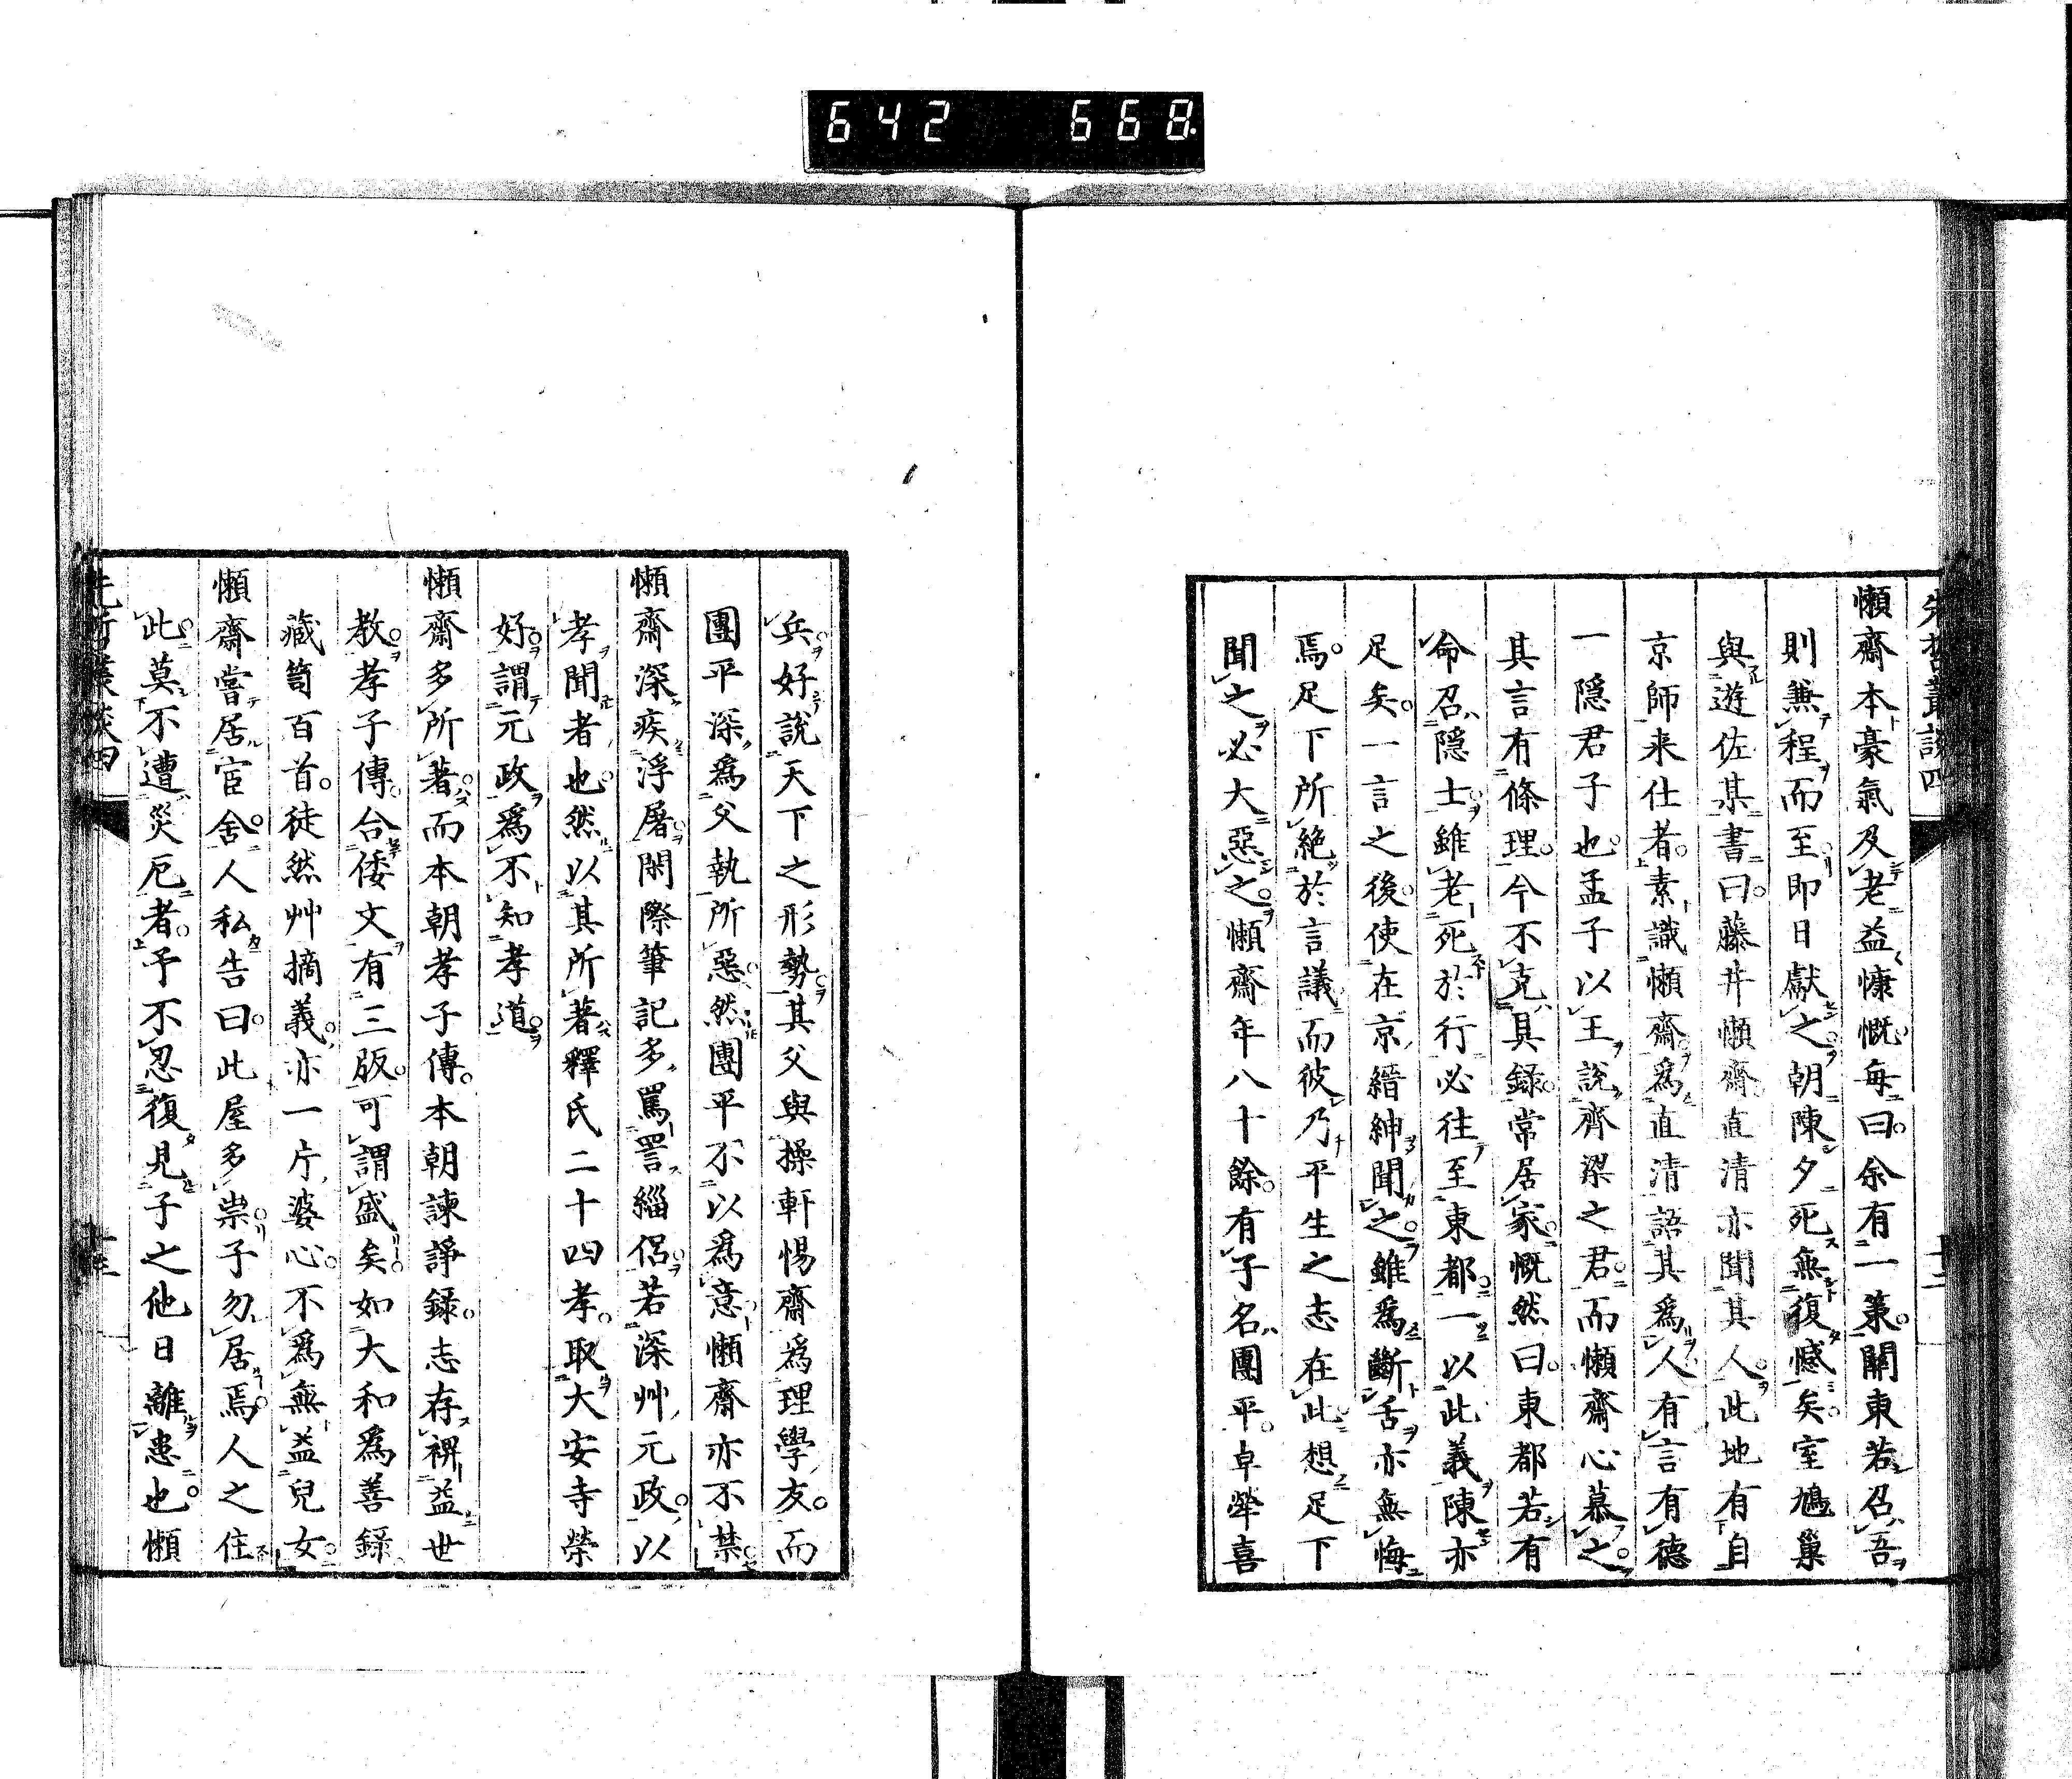 642 668.
先哲叢談四
十二
懶齋本豪氣及老益慷慨毎曰余有一策關東若召吾
則兼程而至即日獻之朝陳夕死無復憾矣室鳩巢
與遊佐某書曰藤井懶齋直清亦聞其人此地有自
京師来仕者素識懶齋爲直清語其爲人有言有德
一隱君子也孟子以王説齊梁之君而懶齋心慕之
其言有條理今不克具録常居家慨然曰東都若有
命召隱士雖老死於行必往至東都一以此義陳亦
足矣一言之後使在京縉紳聞之雖爲斷舌亦無悔
焉足下所絶於言議而彼乃平生之志在此想足下
聞之必大惡之懶齋年八十餘有子名團平卓犖喜
兵好説天下之形勢其父與操軒惕齋爲理學友而
團平深爲父執所惡然團平不以爲意懶齋亦不禁
懶齋深疾浮屠閑際筆記多罵詈緇侶若深艸元政以
孝聞者也然以其所著釋氏二十四孝取大安寺榮
好謂元政爲不知孝道
懶齋多所著而本朝孝子傳本朝諫諍録志存裨益世
教孝子傳合倭文有三版可謂盛矣如大和爲善録
藏笥百首徒然艸摘義亦一片婆心不爲無益兒女
懶齋嘗居宦舍人私告曰此屋多祟子勿居焉人之住
此莫不遭災厄者予不忍復見子之他日離患也懶
先哲叢談四
十三